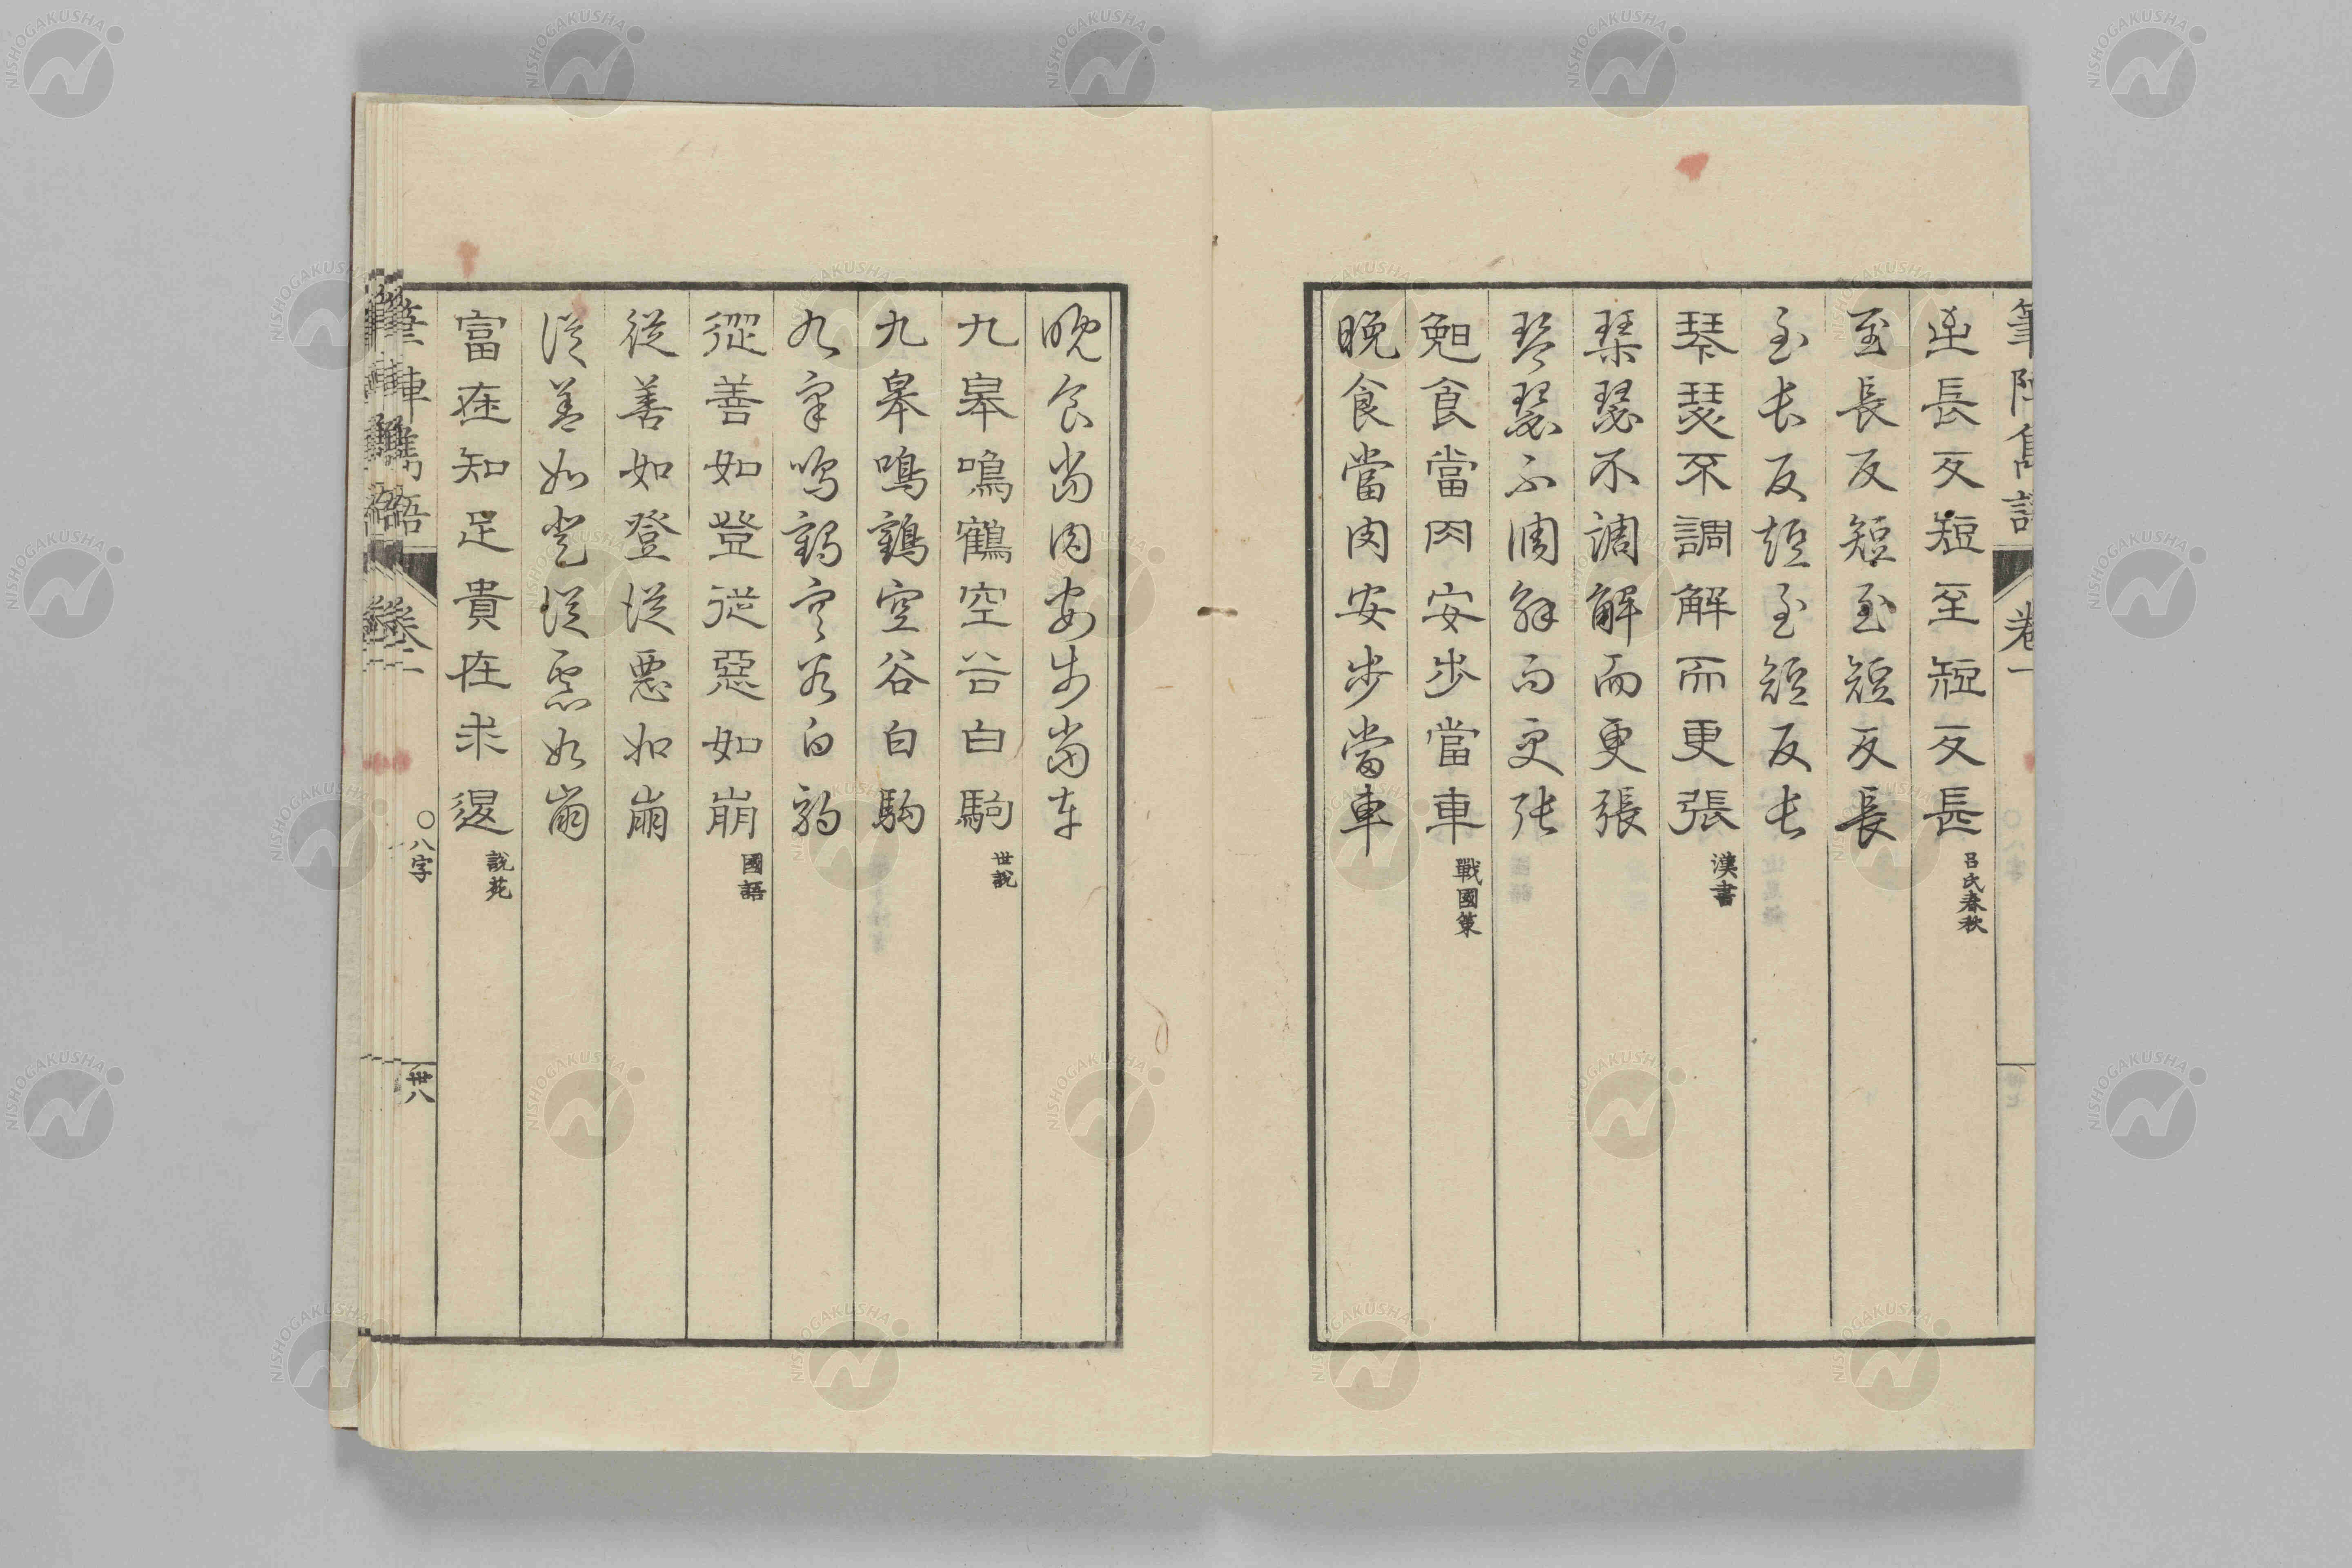 筆陣雋語 卷一
至長反短至短反長 呂氏春秋
至長反短至短反長
至長反短至短反長
琴瑟不調解而更張 漢書
琴瑟不調解而更張
琴瑟不調解而更張
晚食當肉安步當車 戰國策
晚食當肉安步當車
晚食當肉安步當車
九皋鳴鶴空谷白駒 世說
九皋鳴鶴空谷白駒
九皋鳴鶴空谷白駒
從善如登從惡如崩 國語
從善如登從惡如崩
從善如登從惡如崩
富在知足貴在求退 說苑
筆陣雋語 卷一 〇八字 卅八
NISHOGAKUSHA